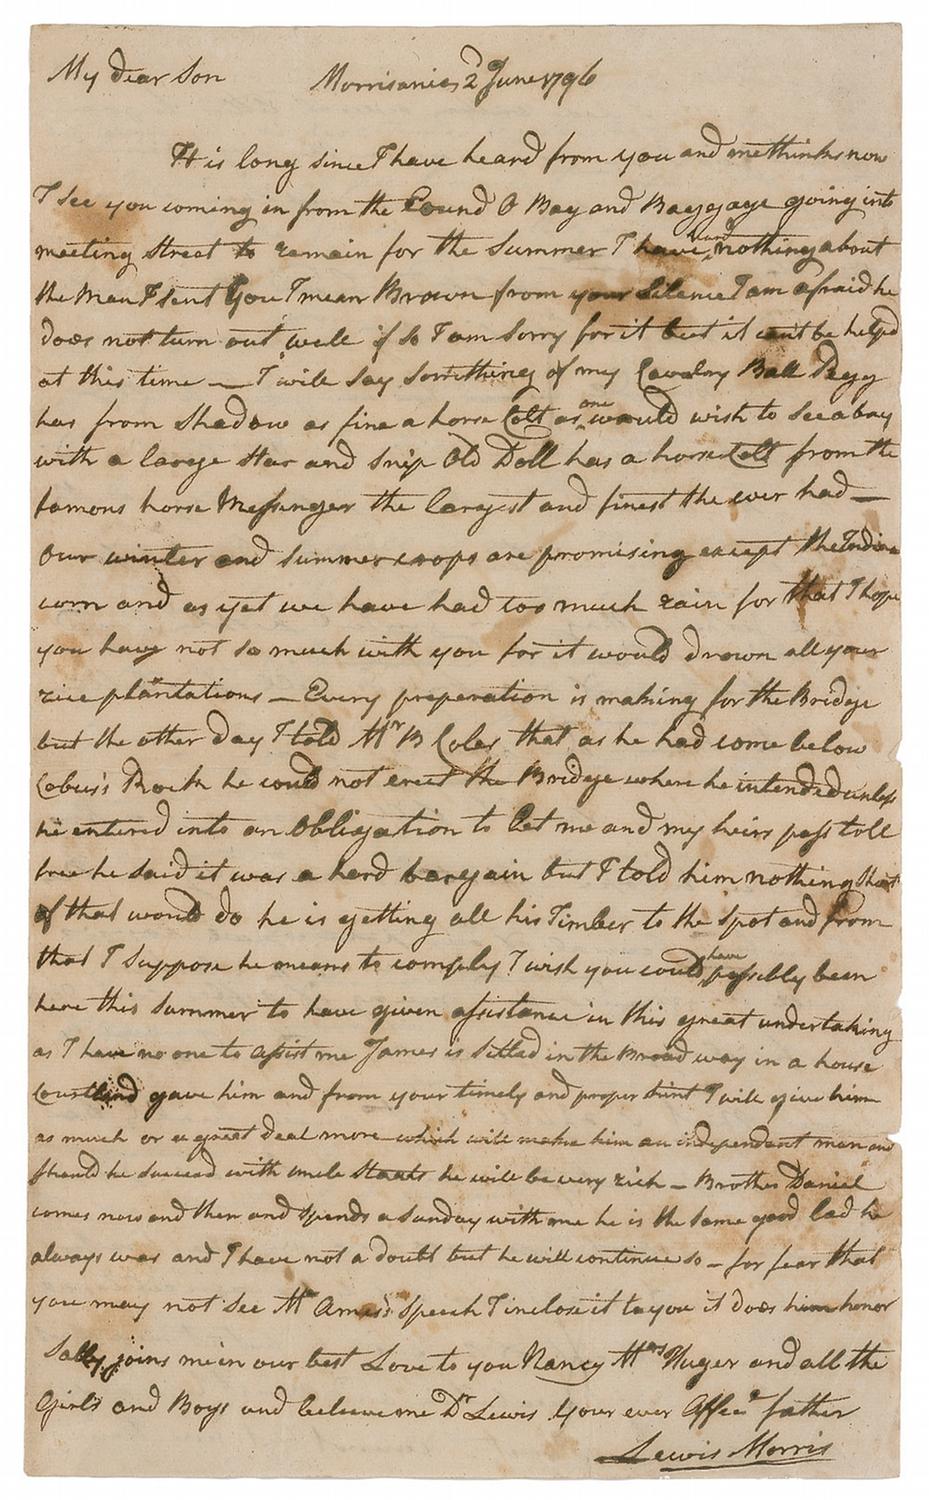 My dear Son Morrisania 2d June 1796
It is long since I have heard from you and methinks now
I see you coming in from the Round O Bag and Baggage going into
meeting street to remain for the Summer I have heard nothing about
the Man I sent you I mean Brown from your Silence I am afraid he
does not turn out well if so I am sorry for it but it cant be helped
at this time — I will say something of my Cavalry Ball Pegg
has from Shadow as fine a horse Colt as one would wish to see a bay
with a large Star and Snip Old Doll has a horse Colt from the
famous horse Messenger the largest and finest she ever had —
Our winter and summer crops are promising except the Indian
corn and as yet we have had too much rain for that I hope
you have not so much with you for it would drown all your
rice plantations — Every preparation is making for the Bridge
but the other day I told Mr B Coles that as he had come below
Cobus's Rock he could not erect the Bridge where he intended unless
he entered into an Obligation to let me and my heirs pass toll
free he said it was a hard bargain but I told him nothing Short
of that would do he is getting all his Timber to the spot and from
that I suppose he means to comply I wish you could have possibly been
here this Summer to have given assistance in this great undertaking
as I have no one to assist me James is Settled in the Broad way in a house
Courtland gave him and from your timely and proper hint I will give him
as much or a great deal more which will make him an independant man and
should he succeed with uncle Staats he will be very rich — Brother Daniel
comes now and then and spends a Sunday with me he is the same good lad he
always was and I have not a doubt but he will continue so — for fear that
you may not see Mr Ames's Speech I inclose it to you it does him honor
Sally joins me in our best Love to you Nancy Mrs Huger and all the
Girls and Boys and believe me Dr Lewis Your ever Affec father
Lewis Morris